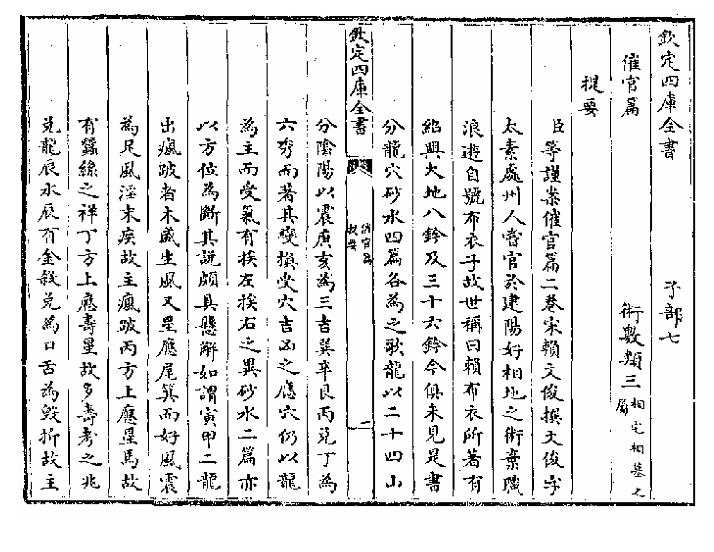 欽定四庫全書　　　子部七
催官篇　　　　　術數類三相宅相墓之屬
提要
臣等謹案催官篇二卷宋賴文俊撰文俊字
太素處州人嘗官於建陽好相地之術棄職
浪遊自號布衣子故世稱曰賴布衣所著有
紹興大地八鈐及三十六鈐今俱未見是書
分龍穴砂水四篇各為之歌龍以二十四山
欽定四庫全書　催官篇提要　一
分陰陽以震庚亥為三吉巽辛艮丙兌丁為
六秀而著其變換受穴吉凶之應穴仍以龍
為主而受氣有挨左挨右之異砂水二篇亦
以方位為斷其說頗具懸解如謂寅甲二龍
出瘋跛者木盛生風又星應尾箕而好風震
為足風淫末疾故主瘋跛丙方上應星馬故
有蠶絲之祥丁方上應壽星故多壽考之兆
兌龍辰水辰有金殺兌為口舌為毀折故主